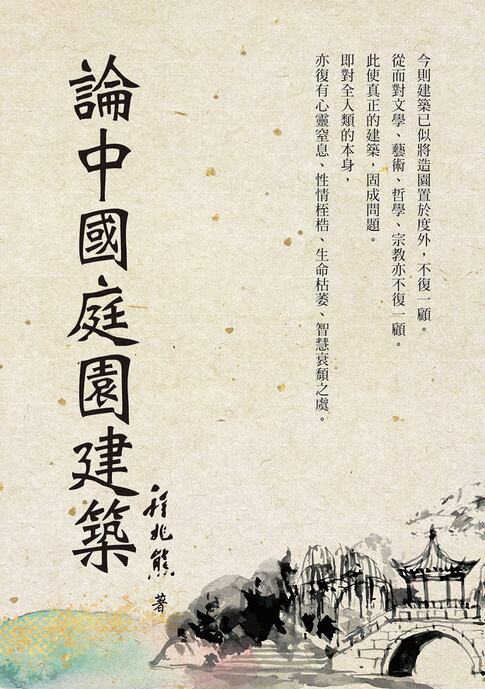 今則建築已似將造園置於度外，不復一顧。
從而對文學、藝術、哲學、宗教亦不復一顧。
此使真正的建築，固成問題。
即對全人類的本身，
亦復有心靈窒息、性情桎梏、生命枯萎、智慧衰頹之虞。
論中國庭園建築
程兆熊 著